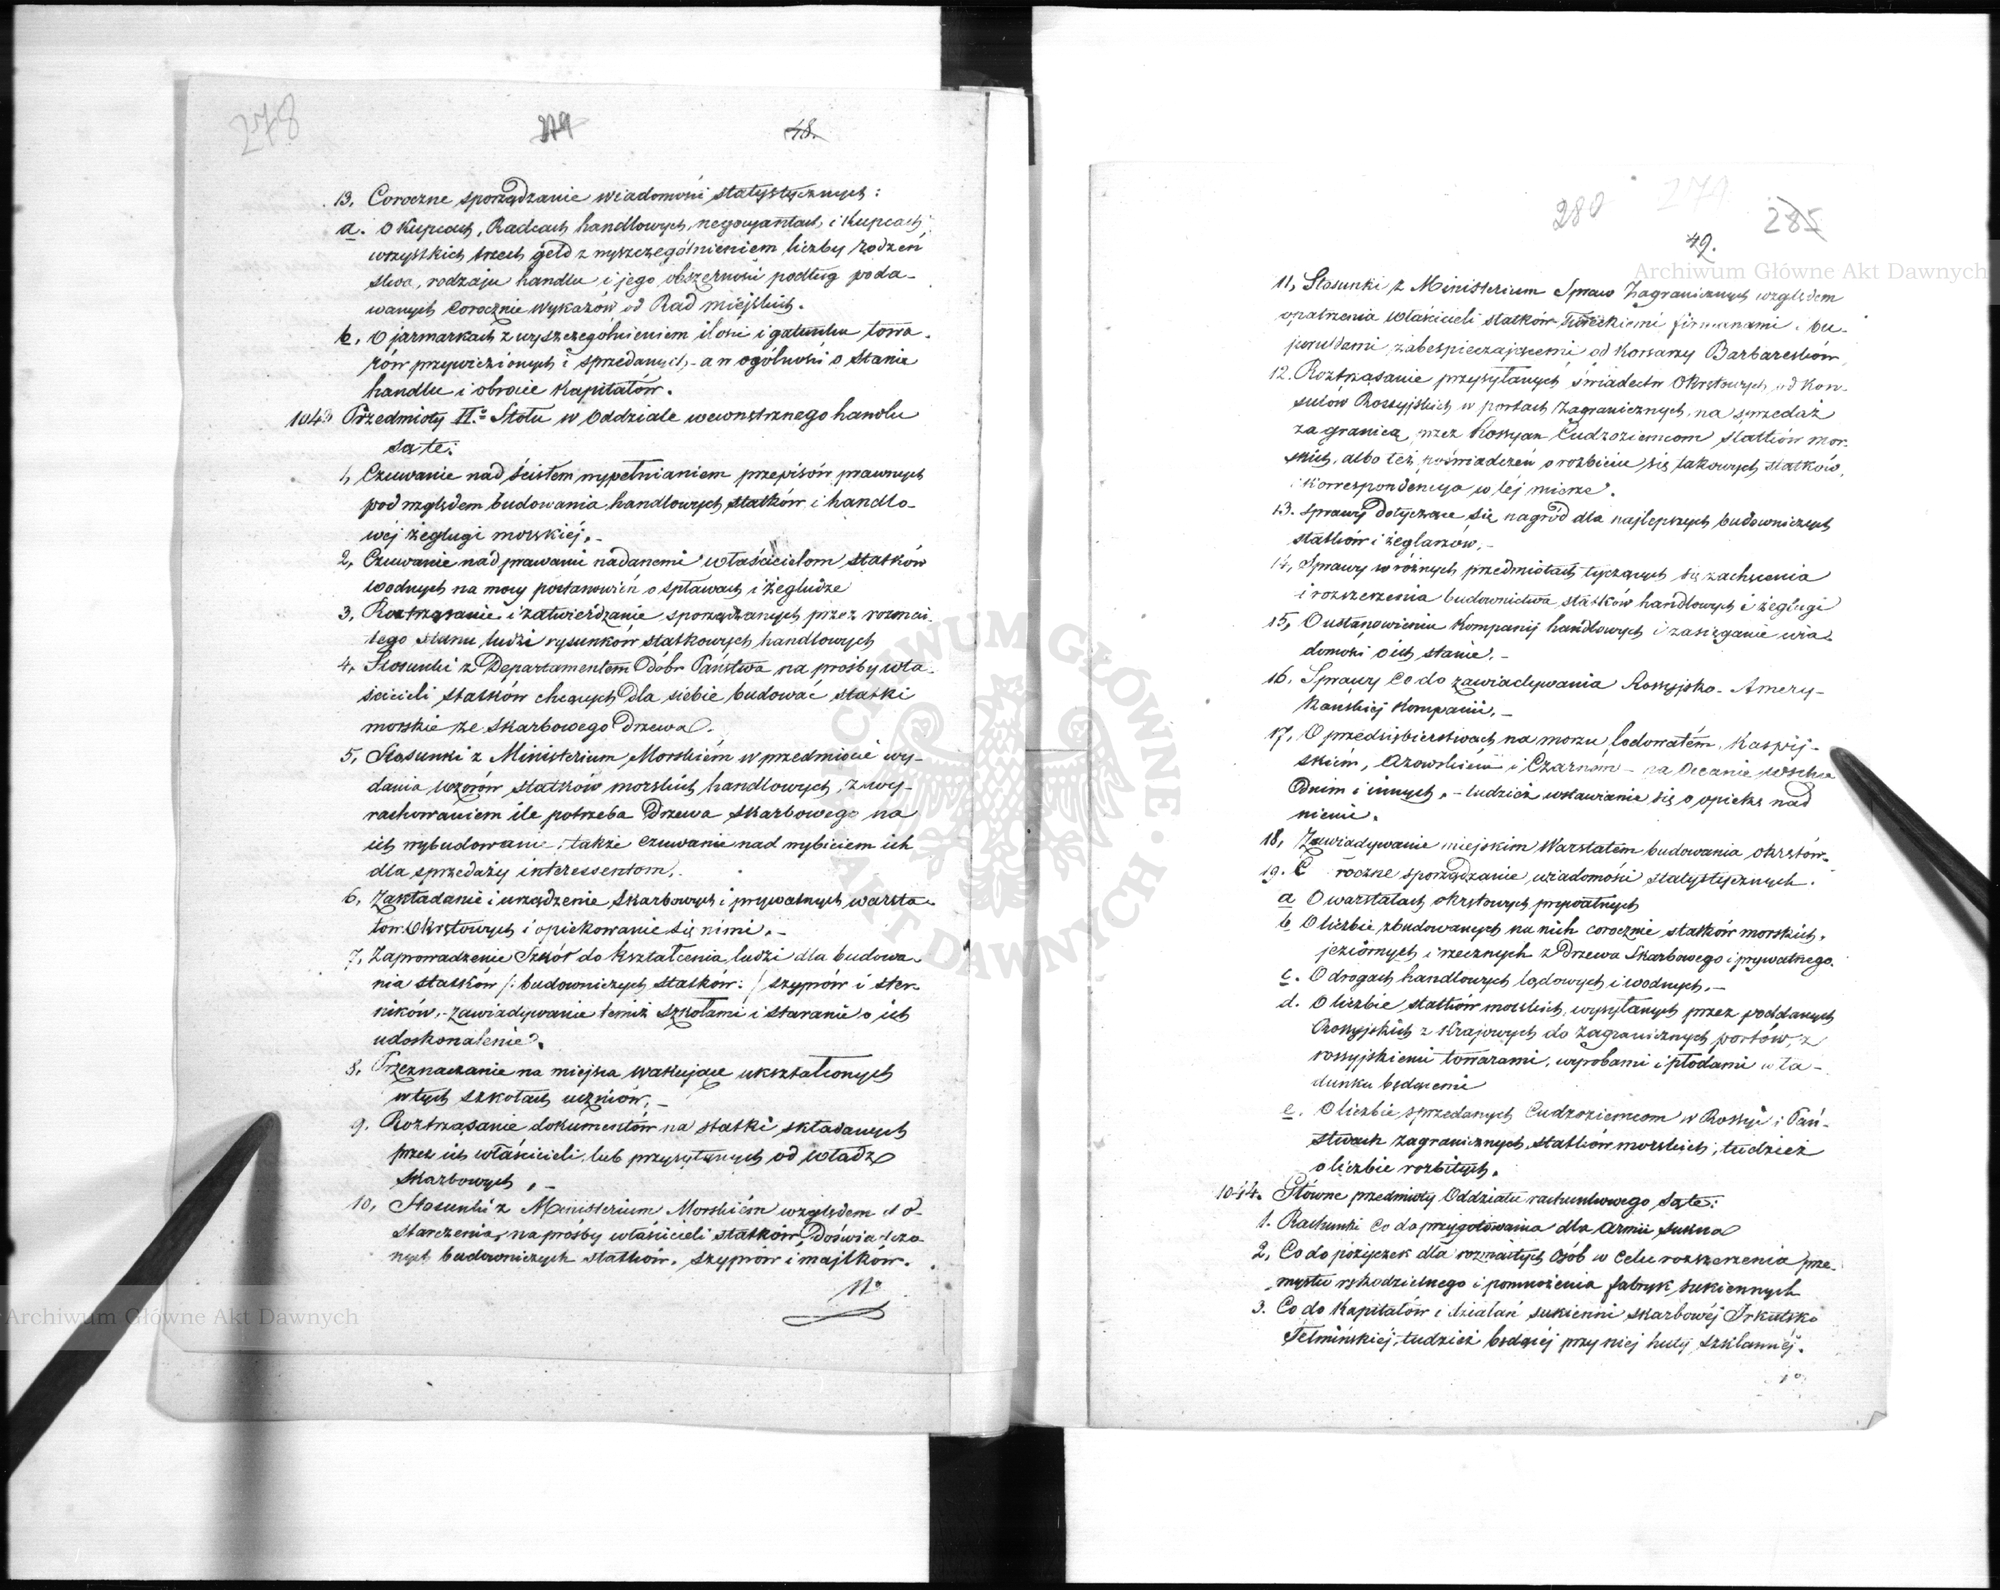 278
279
48.
13, Coroczne sporządzanie wiadomości statystycznych:
a. O Kupcach, Radcach handlowych, negocyantach, i Kupcach
wszystkich trzech geld z wyszczególnieniem, liczby rodzeń
stwa, rodzaju handlu i jego obszerności podług poda-
wanych Corocznie wykazów od Rad miejskich.
b, O jarmarkach z wyszczególnieniem ilości i gatunku towa-
rów przywiezionych i sprzedanych, - a w ogólności o stanie
handlu i obrocie Kapitałów.
1043 Przedmioty II.o Stołu w Oddziale wewnętrznego handlu
są te:
1, Czuwanie nad ścisłem wypełnianiem przepisów prawnych
pod względem budowania handlowych statków i handlo-
wéj żeglugi morskiéj. -
2, Czuwanie nad prawami nadanemi właścicielom statków
wodnych na mocy postanowień o spławach i żegludze
3, Roztrząsanie i zatwierdzanie sporządzanych przez rozmai-
tego stanu ludzi rysunków statkowych, handlowych
4, Stosunki z Departamentem Dóbr Państwa na prośby wła-
ścicieli statków chcących dla siebie budować statki
morskie ze Skarbowego Drzewa.
5, Stosunki z Ministerium Morskiém w przedmiocie wy-
dania wzorów statków morskich handlowych, z wy-
rachowaniem ile potrzeba Drzewa Skarbowego na
ich wybudowanie; także czuwanie nad wybiciem ich
dla sprzedaży interessentom.
6, Zakładanie i urządzenie Skarbowych i prywatnych warszta-
tów Okrętowych i opiekowanie się nimi. -
7, Zaprowadzenie Szkół do kształcenia ludzi dla budowa-
nia statków /: budowniczych statków: / szyprów i ster-
ników, - zawiadywanie temiż szkołami i staranie o ich
udoskonalenie.
8, Przeznaczanie na miejsca wakujące ukształconych
w tych szkołach uczniów. -
9, Roztrząsanie dokumentów na statki składanych
przez ich właścicieli, lub przysyłanych od władz
Skarbowych. -
10, Stosunki z Ministerium Morskiém względem do-
starczenia, na prośby właścicieli statków, doświadczo-
nych budowniczych statków, szyprów i majtków.
11o
280
279
285
49.
11, Stosunki z Ministerium Spraw Zagranicznych względem
opatrzenia właścicieli statków Tureckiemi firmanami i bu-
juruldami, zabespieczającemi od Korsarzy Barbaresków,
12. Roztrząsanie przysyłanych świadectw Okrętowych, od Kon-
sulów Rossyjskich w portach zagranicznych, na sprzedaż
za granicą, przez Rossyan Cudzoziemcom statków mor-
skich, albo też poświadczeń o rozbiciu się takowych statków,
i Korrespondencya w téj mierze.
13. Sprawy dotyczące się nagród dla najlepszych budowniczych
statków i żeglarzów. -
14, Sprawy w różnych przedmiotach tyczących się zachęcenia
i rozszerzenia budownictwa statków handlowych i żeglugi
15, O ustanowieniu Kompanij handlowych i zasięganie wia-
domości o ich stanie. -
16. Sprawy Co do zawiadywania Rossyjsko-Amery-
kańskiej Kompanii. -
17, O przedsiębierstwach na morzu lodowatém, Kaspij-
skiém, Azowskiém i Czarnem - na Oceanie wscho
dnim i innych. - tudzież wstawianie się o opiekę nad
niemi.
18, Zawiadywanie miejskim Warsztatem budowania okrętów.
19. C roczne sporządzanie, wiadomości statystycznych.
a O warsztatach okrętowych prywatnych
b O liczbie zbudowanych na nich corocznie statków morskich,
jeziórnych i rzecznych z Drzewa Skarbowego i prywatnego.
c. O drogach handlowych lądowych i wodnych. -
d. O liczbie statków morskich, wysyłanych przez poddanych
Rossyjskich z Krajowych do zagranicznych portów, z
rossyjskiemi towarami, wyrobami i płodami w ła-
dunku będącemi
e. O liczbie sprzedanych Cudzoziemcom w Rossyi i Pań-
stwach zagranicznych, statków morskich, tudzież
o liczbie rozbitych.
1044. Główne przedmioty Oddziału rachunkowego są te:
1. Rachunki co do przygotowania dla Armii sukna
2, Co do pożyczek dla rozmaitych osób w celu rozszerzenia prze-
mysłu rękodzielnego i pomnożenia fabryk sukiennych
3. Co do Kapitałów i działań sukienni skarbowéj Irkutsko
Telmińskiéj, tudzież będącéj przy niej huty szklannéj.
Archiwum Główne Akt Dawnych
Archiwum Główne Akt Dawnych
ARCHIWUM GŁÓWNE • AKT DAWNYCH •